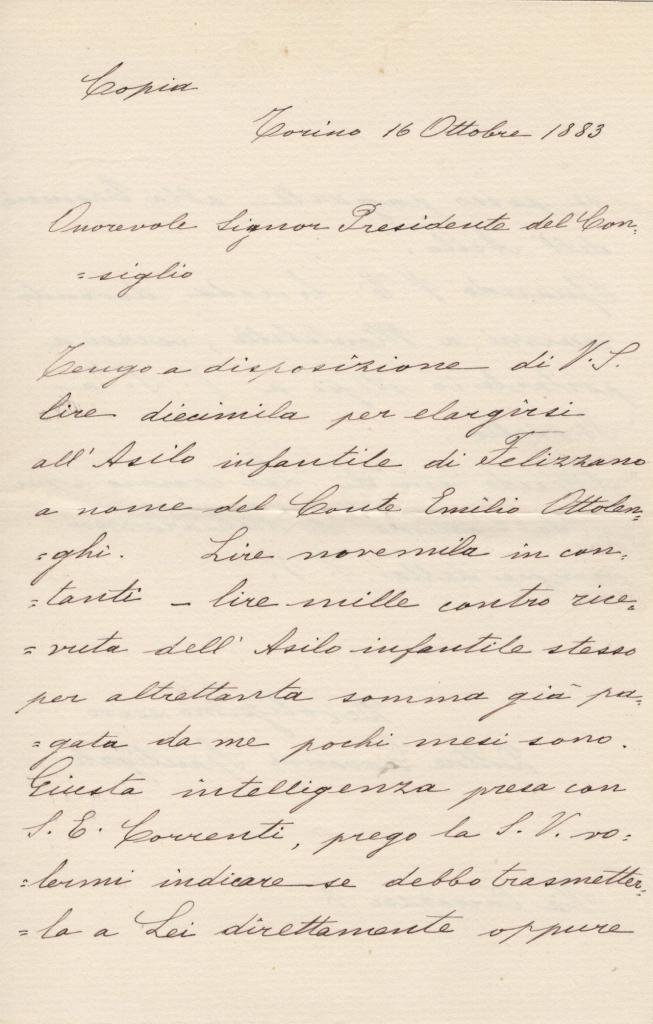 Copia
Torino 16 Ottobre 1883
Onorevole Signor Presidente del Con=
=siglio
Tengo a disposizione di V. S.
lire diecimila per elargirsi
all' Asilo infantile di Felizzano
a nome del Conte Emilio Ottolen=
=ghi. Lire novemila in con=
=tanti – lire mille contro rice=
=vuta dell' Asilo infantile stesso
per altrettanta somma già pa=
=gata da me pochi mesi sono.
Giusta intelligenza presa con
S. E. Correnti, prego la S. V. vo=
=lermi indicare se debbo trasmetter=
=la a Lei direttamente oppure